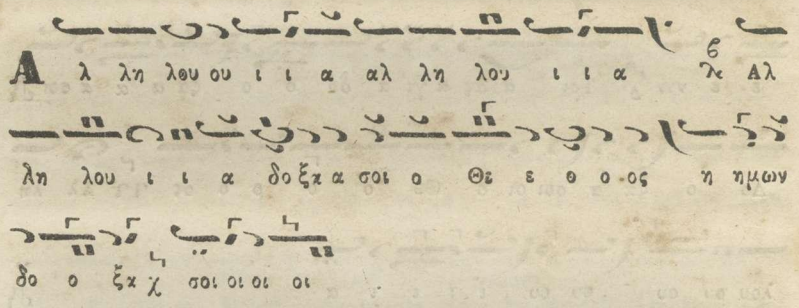 Α λ λη λου ου ι ι α αλ λη λου ι ι α Αλ
λη λου ι ι α δο ξα α σοι ο Θε ε ο ο ος η ημων
δο ο ξα σοι οι οι οι